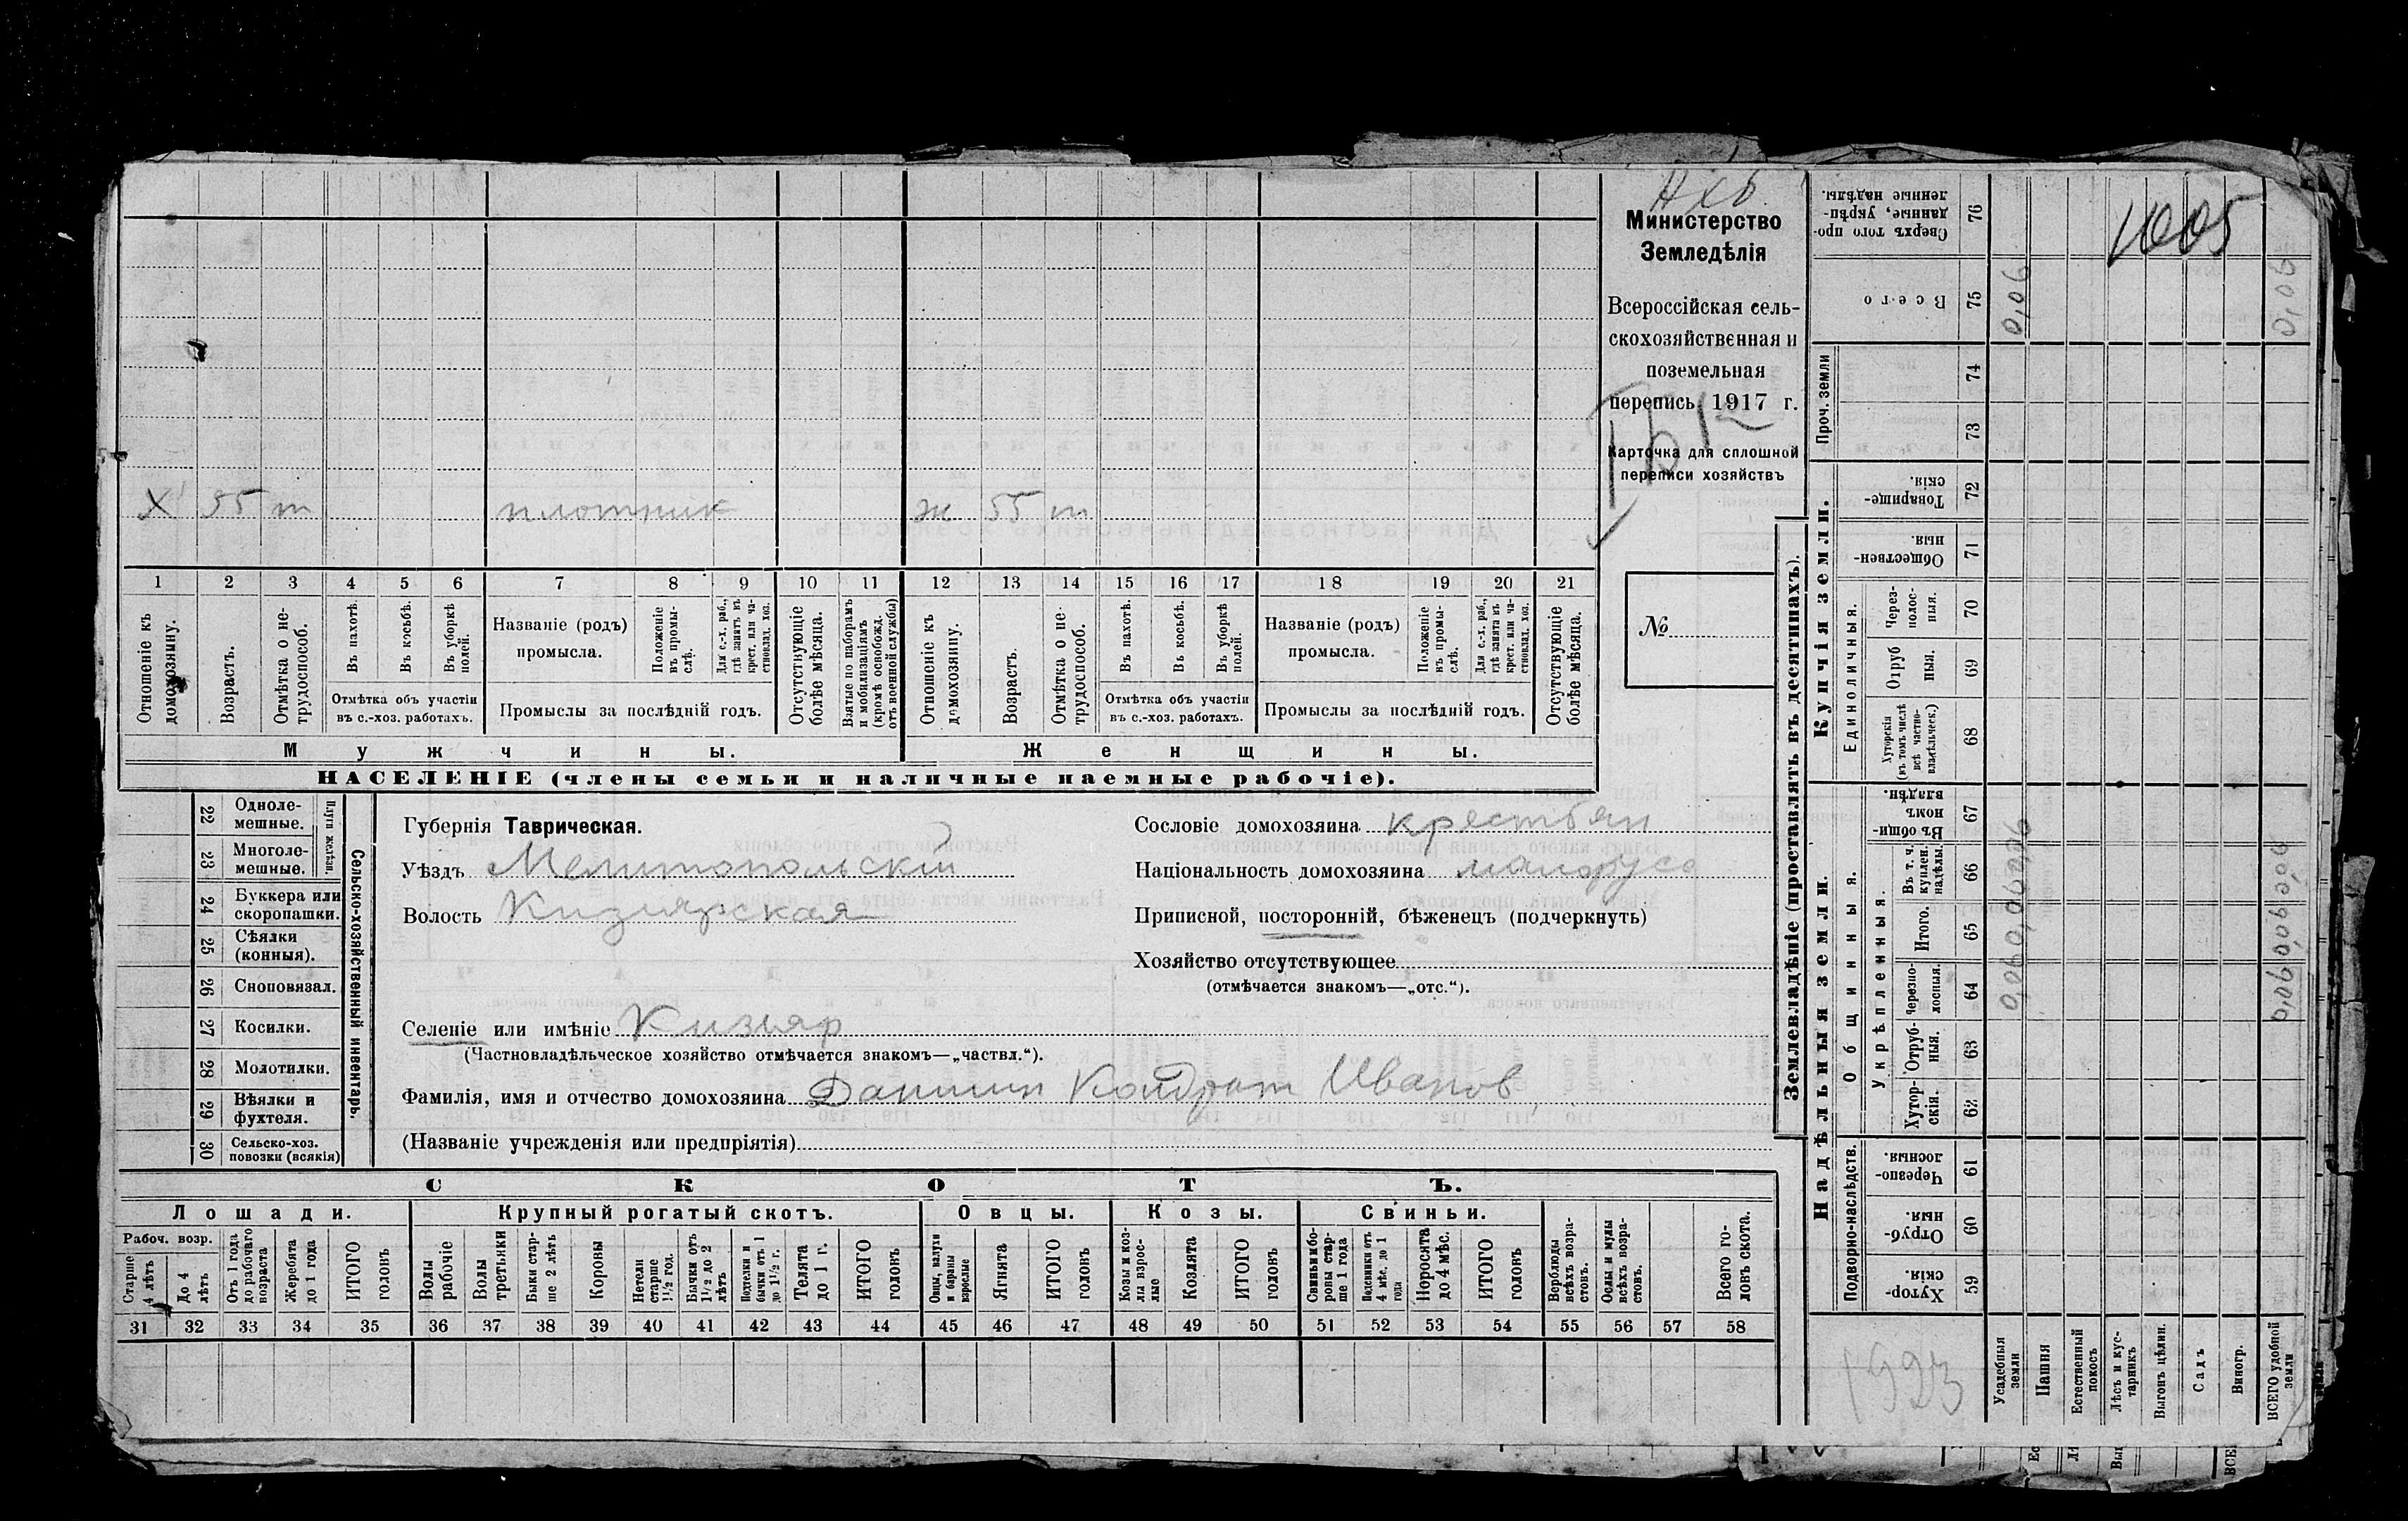 Министерство
Земледѣлія
Всероссійская сель-
скохозяйственная и
поземельная
перепись 1917 г.
Карточка для сплошной
переписи хозяйствъ
№
1005
Х 55 т плотник ж 55 т
1 2 3 4 5 6 7 8 9 10 11 12 13 14 15 16 17 18 19 20 21
Отношеніе къ домохозяину.
Возрастъ.
Отмѣтка о не-трудоспособ.
Въ пахотѣ.
Въ косьбѣ.
Въ уборкѣ полей.
Отмѣтка объ участіи въ с.-хоз. работахъ.
Названіе (родъ) промысла.
Положеніе въ промы-слѣ.
Для с.-х. раб., гдѣ занятъ въ крест. или ча-стновлад. хоз.
Промыслы за послѣдній годъ.
Отсутствующіе болѣе мѣсяца.
Взятые по наборамъ и мобилизаціямъ (кромѣ освобожд. отъ военной службы)
Отношеніе къ домохозяину.
Возрастъ.
Отмѣтка о не-трудоспособ.
Въ пахотѣ.
Въ косьбѣ.
Въ уборкѣ полей.
Отмѣтка объ участіи въ с.-хоз. работахъ.
Названіе (родъ) промысла.
Положеніе въ промы-слѣ.
Для с.-х. раб., гдѣ занята въ крест. или ча-стновлад. хоз.
Промыслы за послѣдній годъ.
Отсутствующіе болѣе мѣсяца.
Мужчины. Женщины.
НАСЕЛЕНІЕ (члены семьи и наличные наемные рабочіе).
22 Одноле-мешные.
23 Многоле-мешные.
Плуги желѣзн.
24 Буккера или скоропашки.
25 Сѣялки (конныя).
26 Сноповязал.
27 Косилки.
28 Молотилки.
29 Вѣялки и фухтеля.
30 Сельско-хоз. повозки (всякія)
Сельско-хозяйственный инвентарь.
Губернія Таврическая.
Уѣздъ Мелитопольскій
Волость Кизиярская
Сословіе домохозяина крестьян
Національность домохозяина малорусс
Приписной, посторонній, бѣженецъ (подчеркнуть)
Хозяйство отсутствующее
(отмѣчается знакомъ—„отс.“).
Селеніе или имѣніе Кизияр
(Частновладѣльческое хозяйство отмѣчается знакомъ—„частвл.“).
Фамилія, имя и отчество домохозяина Данилин Кондрат Иванов
(Названіе учрежденія или предпріятія)
СКОТЪ.
Лошади. Крупный рогатый скотъ. Овцы. Козы. Свиньи.
Рабоч. возр.
Старше 4 лѣтъ
До 4 лѣтъ
Отъ 1 года до рабочаго возраста
Жеребята до 1 года
ИТОГО головъ
Волы рабочіе
Волы третьяки
Быки стар-ше 2 лѣтъ
Коровы
Нетели старше 1½ год.
Бычки отъ 1½ до 2 лѣтъ
Подтелки и бычки отъ 1 до 1½ г.
Телята до 1 г.
ИТОГО головъ
Овцы, валухи и бараны взрослые
Ягнята
ИТОГО головъ
Козы и коз-лы взрос-лые
Козлята
ИТОГО головъ
Свиньи и бо-ровы стар-ше 1 года
Подсвинки отъ 4 мѣс. до 1 года
Поросята до 4 мѣс.
ИТОГО головъ
Верблюды всѣхъ возра-стовъ.
Ослы и мулы всѣхъ возра-стовъ.
Всего го-ловъ скота.
31 32 33 34 35 36 37 38 39 40 41 42 43 44 45 46 47 48 49 50 51 52 53 54 55 56 57 58
Землевладѣніе (проставлять въ десятинахъ).
Сверхъ того про-данные, укрѣп-ленные надѣлы. 76
Всего 75 0,09
0,09
Проч. земли 74
73
Купчія земли.
Товарище-скія. 72
Обществен-ныя. 71
Единоличныя.
Через-полос-ныя. 70
Отруб ныя. 69
Хуторскія (въ томъ числѣ всѣ частно-владѣльческ.) 68
Надѣльныя земли.
Общинныя.
Въ общи-номъ владѣн. 67
Укрѣпленныя.
Въ т. ч. куплен. надѣлы. 66
Итого. 65
Черезпо-лосныя. 64
Отруб-ныя. 63
Хутор-скія. 62
Подворно-наслѣдств.
Черезпо-лосныя. 61
Отруб-ныя. 60
Хутор-скія. 59
1923
Усадебныя земли
Пашня
Естественный покосъ
Лѣсъ и кус-тарникъ
Выгонъ цѣлин.
Садъ
Виногр.
ВСЕГО удобной земли